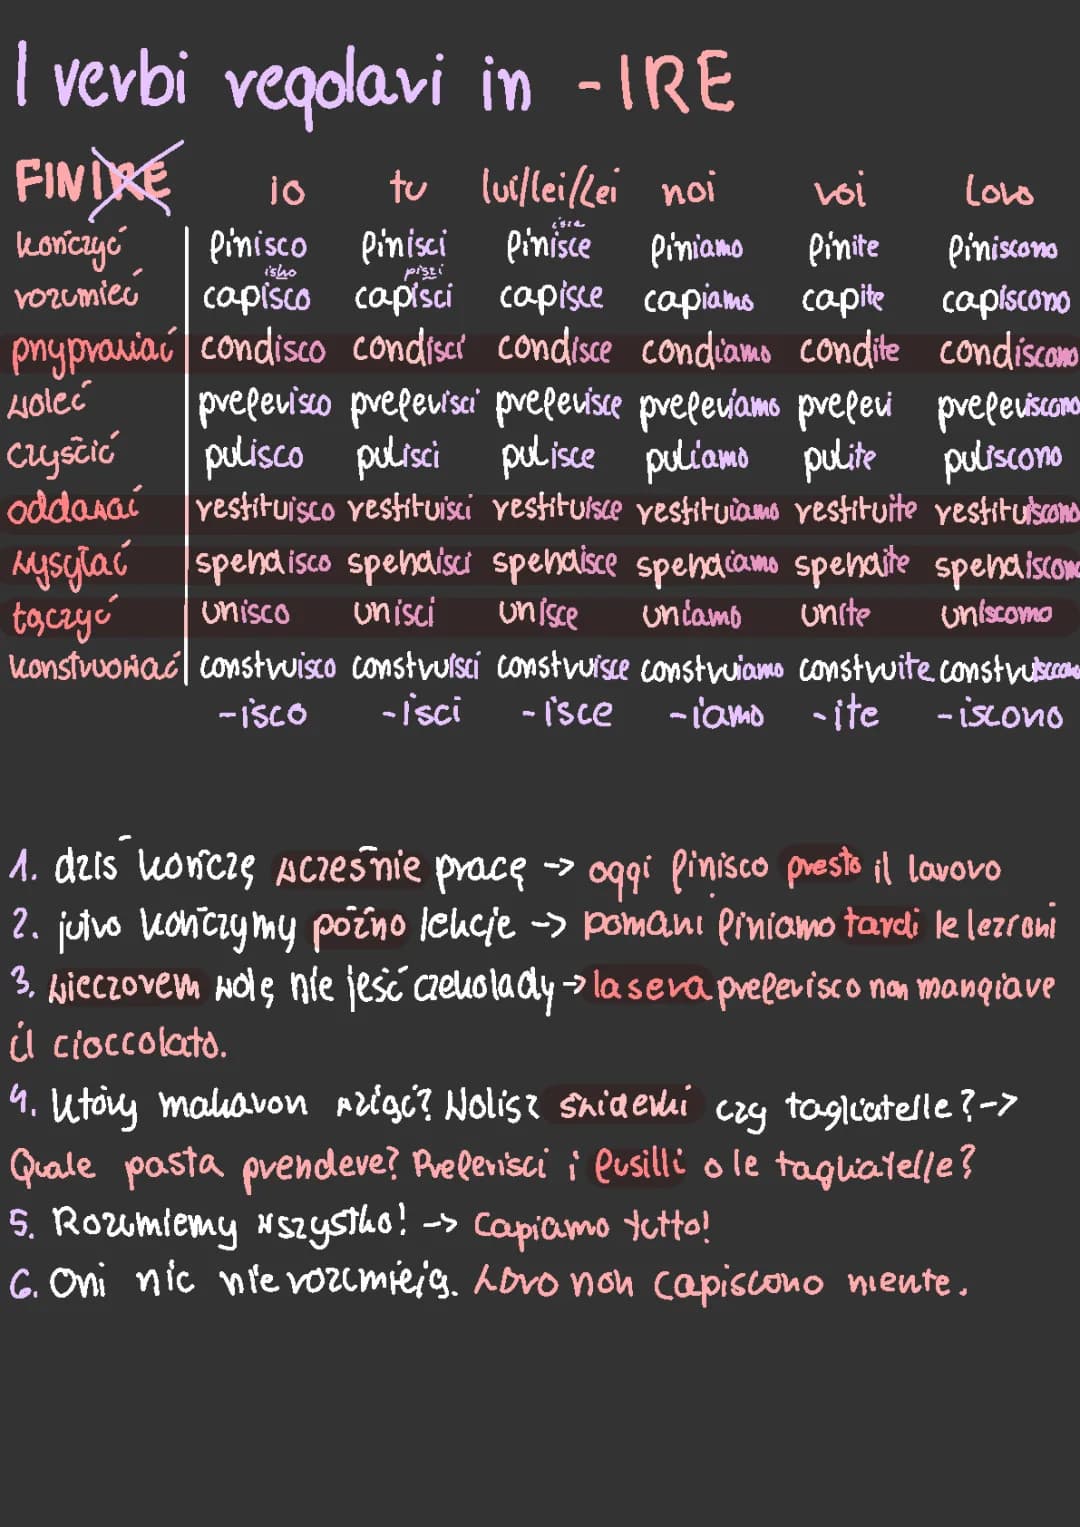 I verbi regolari in -IRE
FINIRE io tu lui/lei/Lei noi voi loro
isze
kończyć finisco finisci finisce finiamo finite finiscono
isko piszi
rozumieć capisco capisci capisce capiamo capite capiscono
przyprawiać condisco condisci condisce condiamo condite condiscono
woleć preferisco preferisci preferisce preferiamo preferi preferiscono
czyścić pulisco pulisci pulisce puliamo pulite puliscono
oddawać restituisco restituisci restituisce restituiamo restituite restituiscono
wysyłać spendisco spendisci spendisce spendiamo spendite spendiscono
łączyć unisco unisci unisce uniamo unite uniscomo
konstruować construisco construisci construisce construiamo construite construiscono
-isco -isci -isce -iamo -ite -iscono
1. dziś kończę wcześnie pracę -> oggi finisco presto il lavoro
2. jutro kończymy późno lekcje -> Domani finiamo tardi le lezioni
3. wieczorem wolę nie jeść czekolady -> la sera preferisco non mangiare
il cioccolato.
4. Który makaron wziąć? Wolisz świderki czy tagliatelle? ->
Quale pasta prendere? Preferisci i fusilli o le tagliatelle?
5. Rozumiemy wszystko! -> Capiamo tutto!
6. Oni nic nie rozumieją. Loro non capiscono niente.